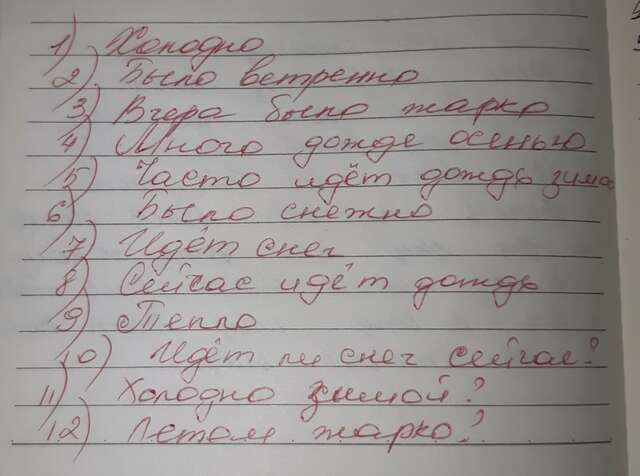 1) Холодно
2) Было ветренно
3) Вчера было жарко
4) Много дожде осенью
5) Часто идёт дождь зимо
6) Было снежно
7) Идёт снег
8) Сейчас идёт дождь
9) Тепло
10) Идёт ли снег сейчас?
11) Холодно зимой?
12) Летом жарко?